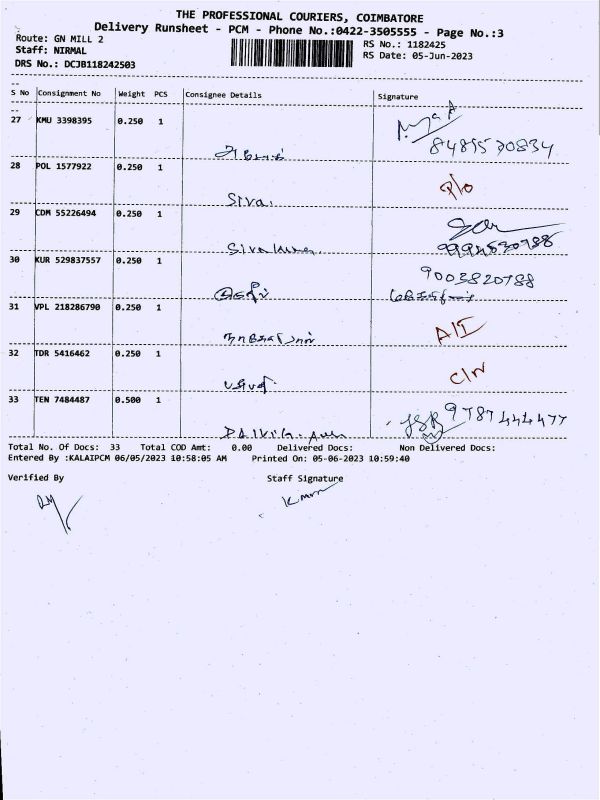 THE PROFESSIONAL COURIERS, COIMBATORE
Delivery Runsheet - PCM - Phone No.:0422-3505555 - Page No.:3
Route: GN MILL 2
RS No.: 1182425
Staff: NIRMAL
RS Date: 05-Jun-2023
DRS No.: DCJB118242503
S No Consignment No Weight PCS Consignee Details Signature
27 KMU 3398395 0.250 1
8489570834
28 POL 1577922 0.250 1
Siva.
29 CDM 55226494 0.250 1
30 KUR 529837557 0.250 1
9003820788
31 VPL 218286790 0.250 1
A/I
32 TDR 5416462 0.250 1
33 TEN 7484487 0.500 1
9787444477
Total No. Of Docs: 33 Total COD Amt: 0.00 Delivered Docs: Non Delivered Docs:
Entered By :KALAIPCM 06/05/2023 10:58:05 AM Printed On: 05-06-2023 10:59:40
Verified By Staff Signature